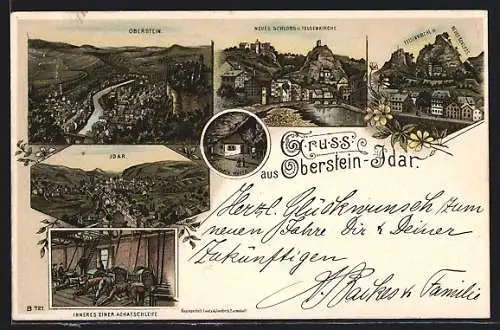 OBERSTEIN.
NEUES SCHLOSS u. FELSENKIRCHE.
FELSENKIRCHE u.
IDAR.
Gruss
aus Oberstein-Idar.
Herzl. Glückwunsch zum
neuen Jahre Dir & Deiner
Zukünftigen
Familie
B 721.
INNERES EINER ACHATSCHLEIFE.